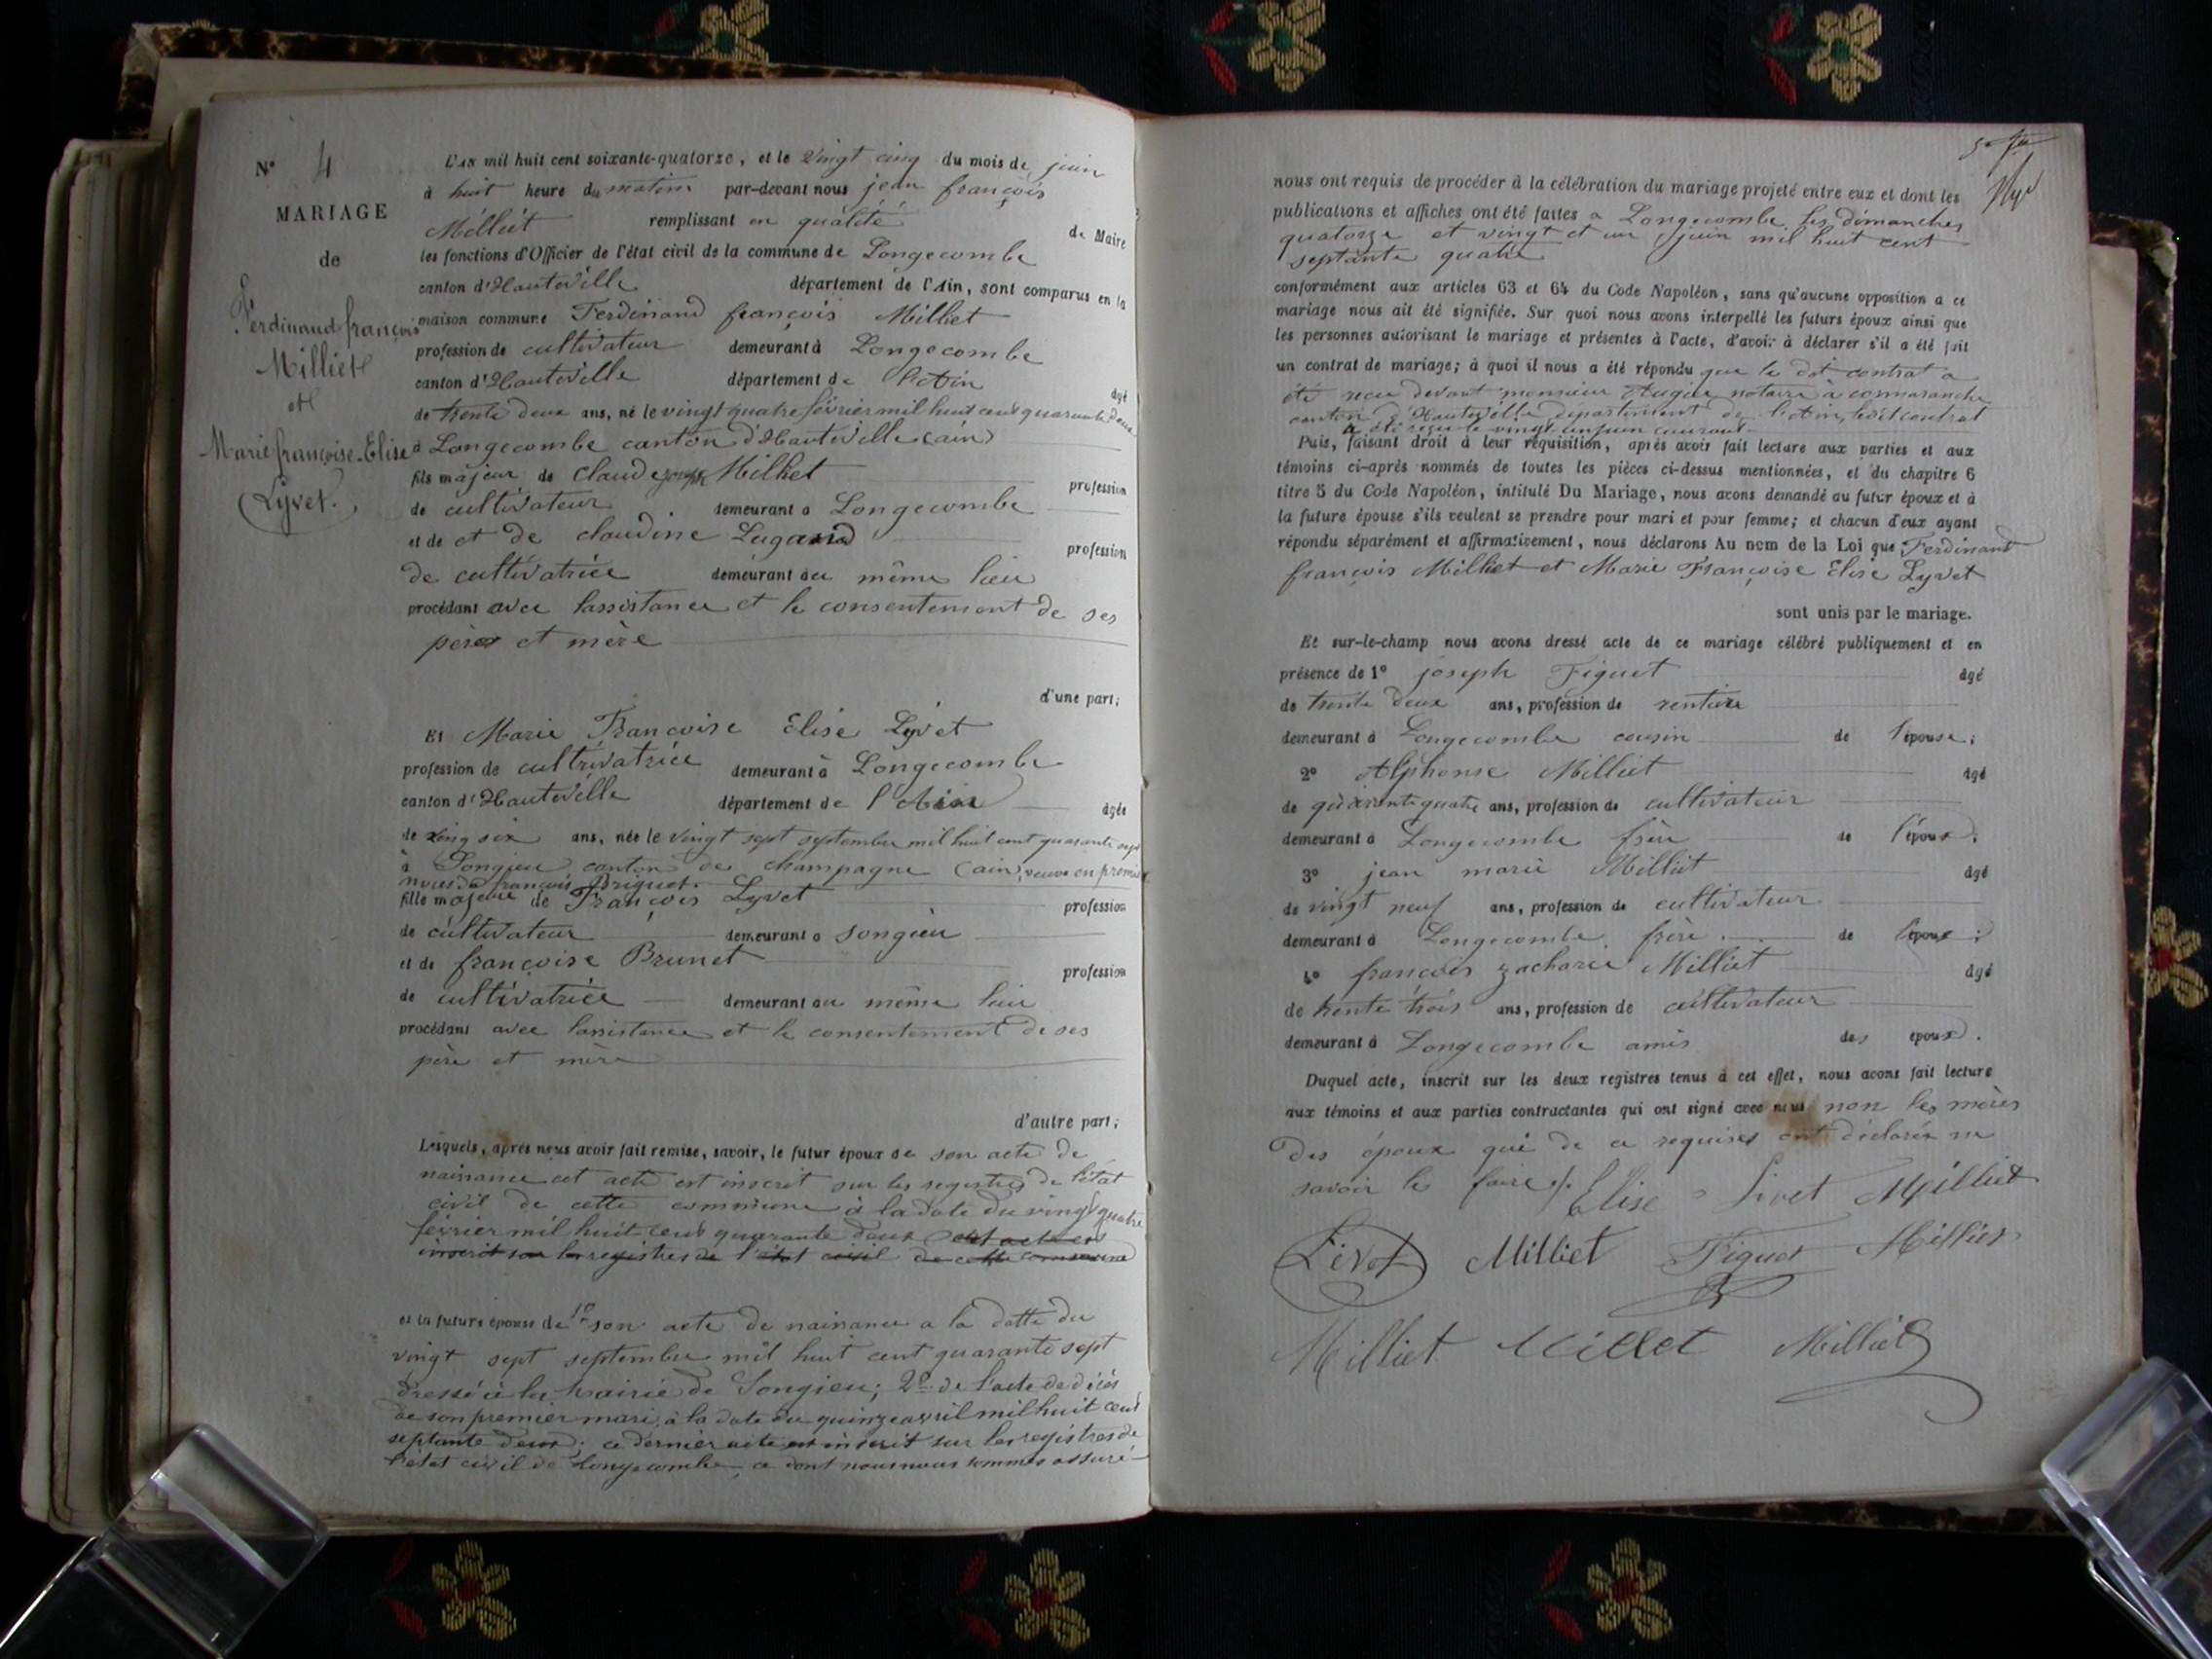 N° 4
MARIAGE
de
Ferdinand françois
Milliet
et
Marie françoise-Elise
Lyvet.
L'AN mil huit cent soixante-quatorze, et le vingt cinq du mois de juin
à huit heure du matin par-devant nous jean françois
Milliet remplissant en qualité de Maire
les fonctions d'Officier de l'état civil de la commune de Longecombe
canton d'Hauteville département de l'Ain, sont comparus en la
maison commune Ferdinand françois Milliet
profession de cultivateur demeurant à Longecombe
canton d'Hauteville département de l'Ain âgé
de trente deux ans, né le vingt quatre février mil huit cent quarante deux
à Longecombe canton d'Hauteville (ain)
fils majeur de claude joseph Milliet profession
de cultivateur demeurant à Longecombe
et de et de claudine Lugand profession
de cultivatrice demeurant au même lieu
procédant avec lassistance et le consentement de ses
père et mère
d'une part;
Et Marie Françoise Elise Lyvet
profession de cultivatrice demeurant à Longecombe
canton d'Hauteville département de l'Ain âgée
de ving six ans, née le vingt sept septembre mil huit cent quarante sept
à Songieu canton de champagne (ain) veuve en premi
noces de françois Briguet.
fille majeure de François Lyvet profession
de cultivateur demeurant à songieu
et de françoise Brunet profession
de cultivatrice demeurant au même lieu
procédant avec lassistance et le consentement de ses
père et mère
d'autre part;
Lesquels, après nous avoir fait remise, savoir, le futur époux de son acte de
naissance cet acte est inscrit sur les registres de l'état
civil de cette commune à la date du vingt quatre
février mil huit cent quarante deux cet acte est
inscrit sur les registres de l'état civil de cette commune
et la future épouse de 1° son acte de naissance a la datte du
vingt sept septembre mil huit cent quarante sept
dressé à la Mairie de Songieu; 2° de l'acte de décès
de son premier mari, à la date du quinze avril mil huit cent
septante deux; ce dernier acte est inscrit sur les registres de
l'état civil de Longecombe, ce dont nous nous sommes assuré
nous ont requis de procéder à la célébration du mariage projeté entre eux et dont les
publications et affiches ont été faites a Longecombe les dimanches
quatorze et vingt et un juin mil huit cent
septante quatre
conformément aux articles 63 et 64 du Code Napoléon, sans qu'aucune opposition a ce
mariage nous ait été signifiée. Sur quoi nous avons interpellé les futurs époux ainsi que
les personnes autorisant le mariage et présentes à l'acte, d'avoir à déclarer s'il a été fait
un contrat de mariage; à quoi il nous a été répondu que le dit contrat a
été reçu devant monsieur Augier notaire à cormaranche
canton d'Hauteville département de l'Ain, ledit contrat
a été reçu le vingt un juin courant
Puis, faisant droit à leur réquisition, après avoir fait lecture aux parties et aux
témoins ci-après nommés de toutes les pièces ci-dessus mentionnées, et du chapitre 6
titre 5 du Code Napoléon, intitulé Du Mariage, nous avons demandé au futur époux et à
la future épouse s'ils veulent se prendre pour mari et pour femme; et chacun d'eux ayant
répondu séparément et affirmativement, nous déclarons Au nom de la Loi que Ferdinand
françois Milliet et Marie Françoise Elise Lyvet
sont unis par le mariage.
Et sur-le-champ nous avons dressé acte de ce mariage célébré publiquement et en
présence de 1° joseph Figuet âgé
de trente deux ans, profession de rentier
demeurant à Longecombe cousin de l'épouse;
2° Alphonse Milliet âgé
de quarante quatre ans, profession de cultivateur
demeurant à Longecombe frère de l'époux;
3° jean marie Milliet âgé
de vingt neuf ans, profession de cultivateur
demeurant à Longecombe frère de lépoux;
4° françois zacharie Milliet âgé
de trente trois ans, profession de cultivateur
demeurant à Longecombe amis des époux.
Duquel acte, inscrit sur les deux registres tenus à cet effet, nous avons fait lecture
aux témoins et aux parties contractantes qui ont signé avec nous non les mères
des époux qui de ce requises ont déclarés ne
savoir le faire /. Elise Livet Milliet
Livet Milliet Figuet Milliet
Milliet Milliet Milliet